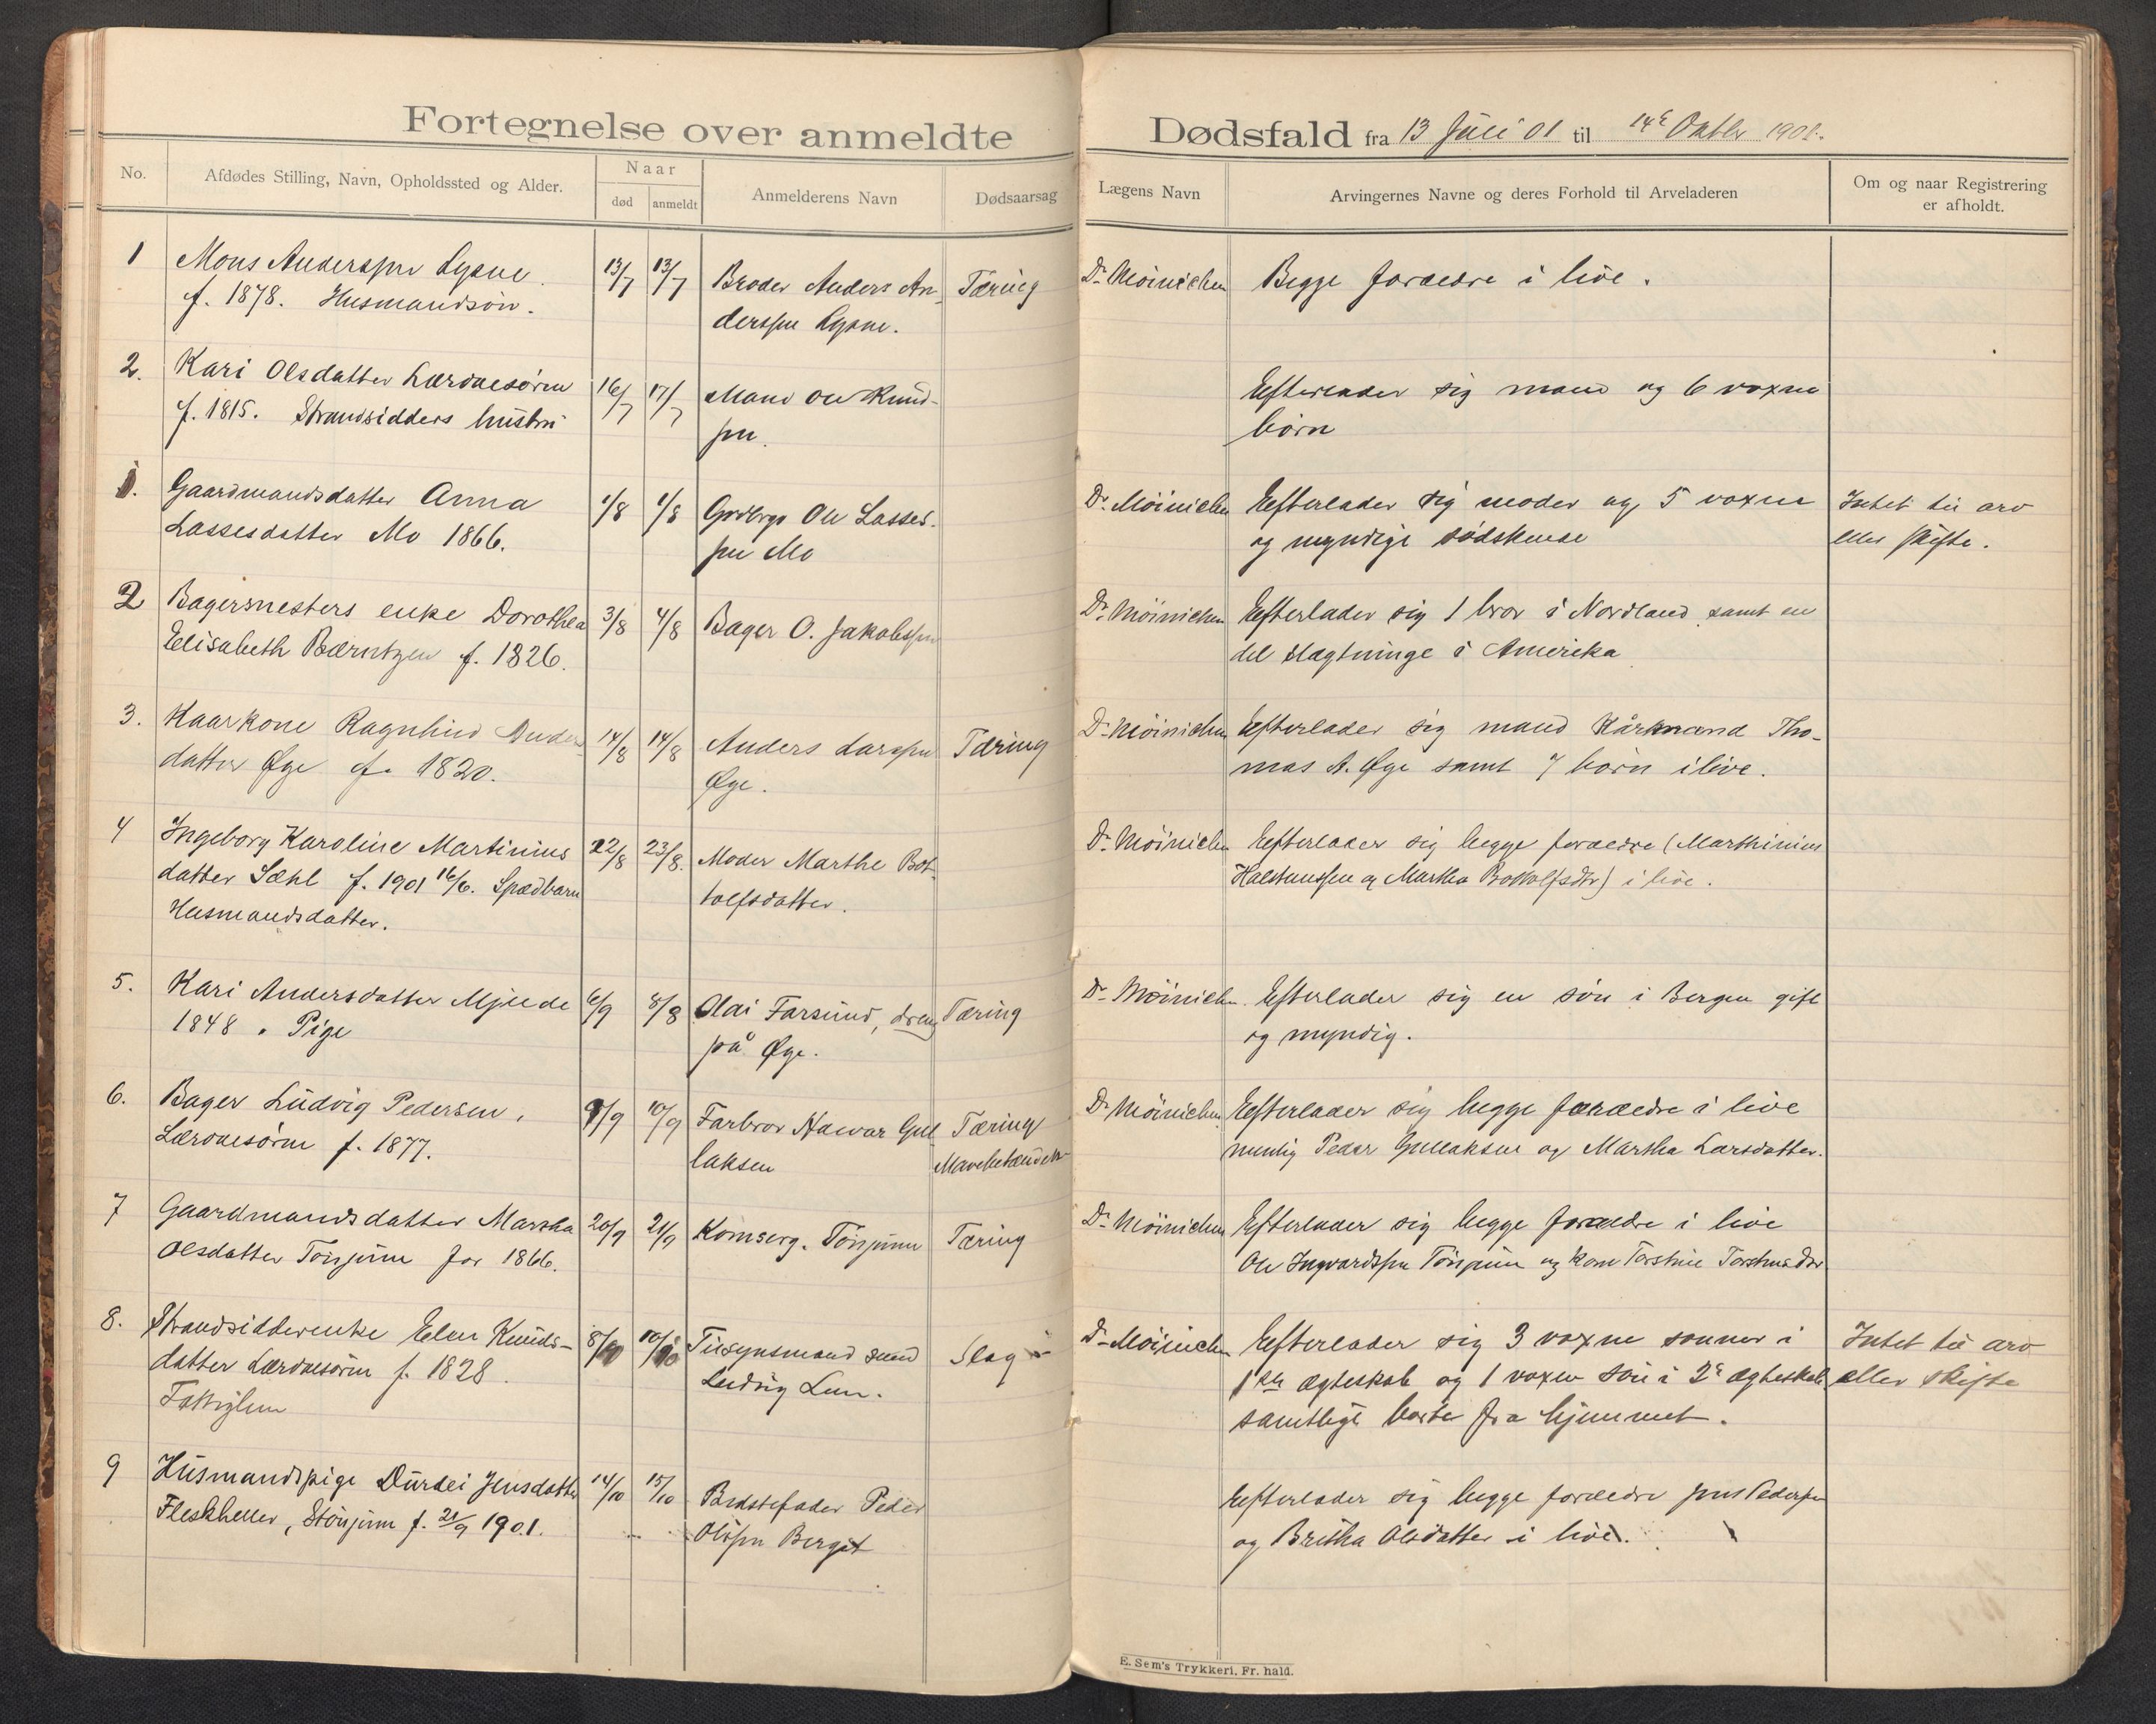 Fortegnelse over anmeldte Dødsfald fra 13 Juli 01 til 14de Oktbr 1901.
No.
Afdødes Stilling, Navn, Opholdssted og Alder.
Naar
død
anmeldt
Anmelderens Navn
Dødsaarsag
Lægens Navn
Arvingernes Navne og deres Forhold til Arveladeren
Om og naar Registrering
er afholdt.
1 Mons Anderssen Lysne. 13/7 13/7 Broder Anders An- Tæring Dr Møinichen Begge forældre i live.
f. 1878. Husmandsøn. derssen Lysne.
2. Kari Olsdatter Lærdalsøren 16/7 17/7 Mand Ole Knud- Efterlader sig mand og 6 voxne
f. 1815. Strandsidders hustru sen. børn
1. Gaardmandsdatter Anna 1/8 1/8 Grdbrgr Ole Lasses- Dr. Møinichen Efterlader sig moder og 5 voxne Intet til arv
Lassesdatter Mo 1866. sen Mo og myndige sødskende eller skifte.
2 Bagermesters enke Dorothea 3/8 4/8 Bager O. Jakobssen Dr. Møinichen Efterlader sig 1 bror i Nordland samt en
Elisabeth Bærntzen f. 1826. del slægtninge i Amerika
3. Kaarkone Ragnhild Anders 14/8 14/8 Anders Larssen Tæring Dr Møinichen Efterlader sig mand Kårmand Tho-
datter Øye f. 1820. Øye. mas A. Øye samt 7 børn ilive.
4 Ingeborg Karoline Martinius 22/8 23/8. Moder Marthe Bot- Dr Møinichen Efterlader sig begge forældre (Marthinius
datter Sæhl f. 1901 16/6. Spædbarn tolfsdatter. Halstenssen og Martha Bottolfsdtr) i live.
Husmandsdatter.
5. Kari Andersdatter Mjelde 6/9 8/8 Olai Farsund, dreng Tæring Dr Møinichen Efterlader sig en søn i Bergen gift
1848. Pige på Øye. og myndig.
6. Bager Ludvig Pedersen, 9/9 10/9 Farbror Halvar Gul Tæring Dr Møinichen Efterlader sig begge forældre i live
Lærdalsøren f. 1877. laksen nemlig Peder Gullaksen og Martha Larsdatter.
7 Gaardmandsdatter Martha 20/9 21/9 Komserg. Tønjum Tæring Dr Møinichen Efterlader sig begge forældre i live
Olsdatter Tønjum før 1866. Ole Ingvardsen Tønjum og kone Torstine Torstensdtr
8. Strandsidderenke Elen Knuds- 8/10 10/10 Tilsynsmand Slag Dr Møinichen Efterlader sig 3 voxne sønner i Intet til arv
datter Lærdalsøren f. 1828. Ludvig Lem. 1ste ægteskab og 1 voxen søn i 2de ægteskab eller skifte
Fattiglem samtlige borte fra hjemmet.
9 Husmandspige Durdei Jensdatter 14/10 15/10 Bedstefader Peder Efterlader sig begge forældre Jens Pedersen
Fleskheller, Stønjum f. 21/9 1901. Olssen Berget og Britha Olsdatter i live.
E. Sem's Trykkeri, Fr. hald.